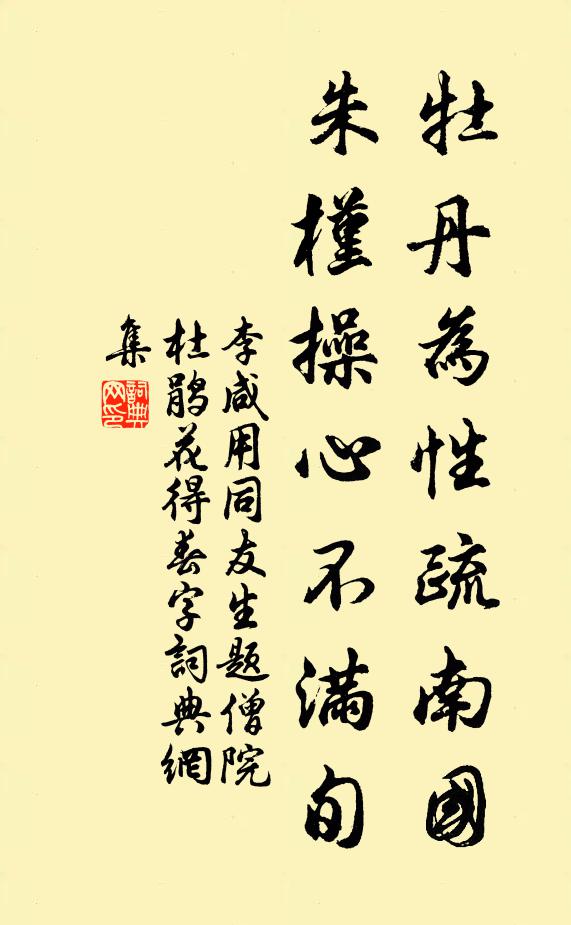 牡丹為性疏南國
朱槿操心不滿旬
李咸用同友生題僧院
杜鵑花得春字詞典網
集
詞典网印